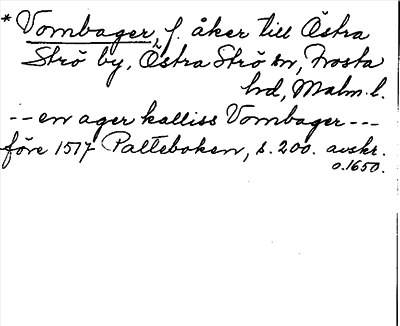 * Vombager, f. åker till Östra
Strö by, Östra Strö sn, Frosta
hd, Malm. l.
-- en ager kalliss Vombager ---
före 1517 Palteboken, s. 200. avskr.
o. 1650.